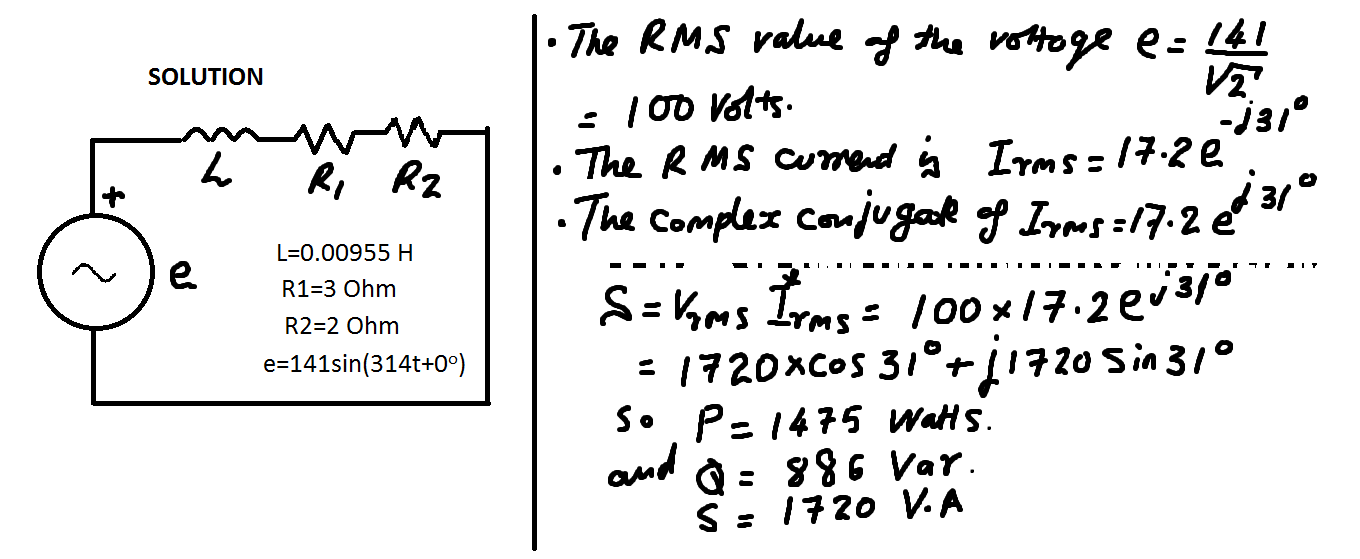 SOLUTION
+
e
L
R1
R2
L=0.00955 H
R1=3 Ohm
R2=2 Ohm
e=141sin(314t+0°)
• The RMS value of the voltage e = 141/√2
= 100 Volts.
• The RMS current is Irms = 17.2 e^-j31°
• The complex conjugate of Irms = 17.2 e^j31°
S = Vrms I*rms = 100 × 17.2 e^j31°
= 1720 × cos 31° + j 1720 Sin 31°
So P = 1475 Watts.
and Q = 886 Var.
S = 1720 V.A